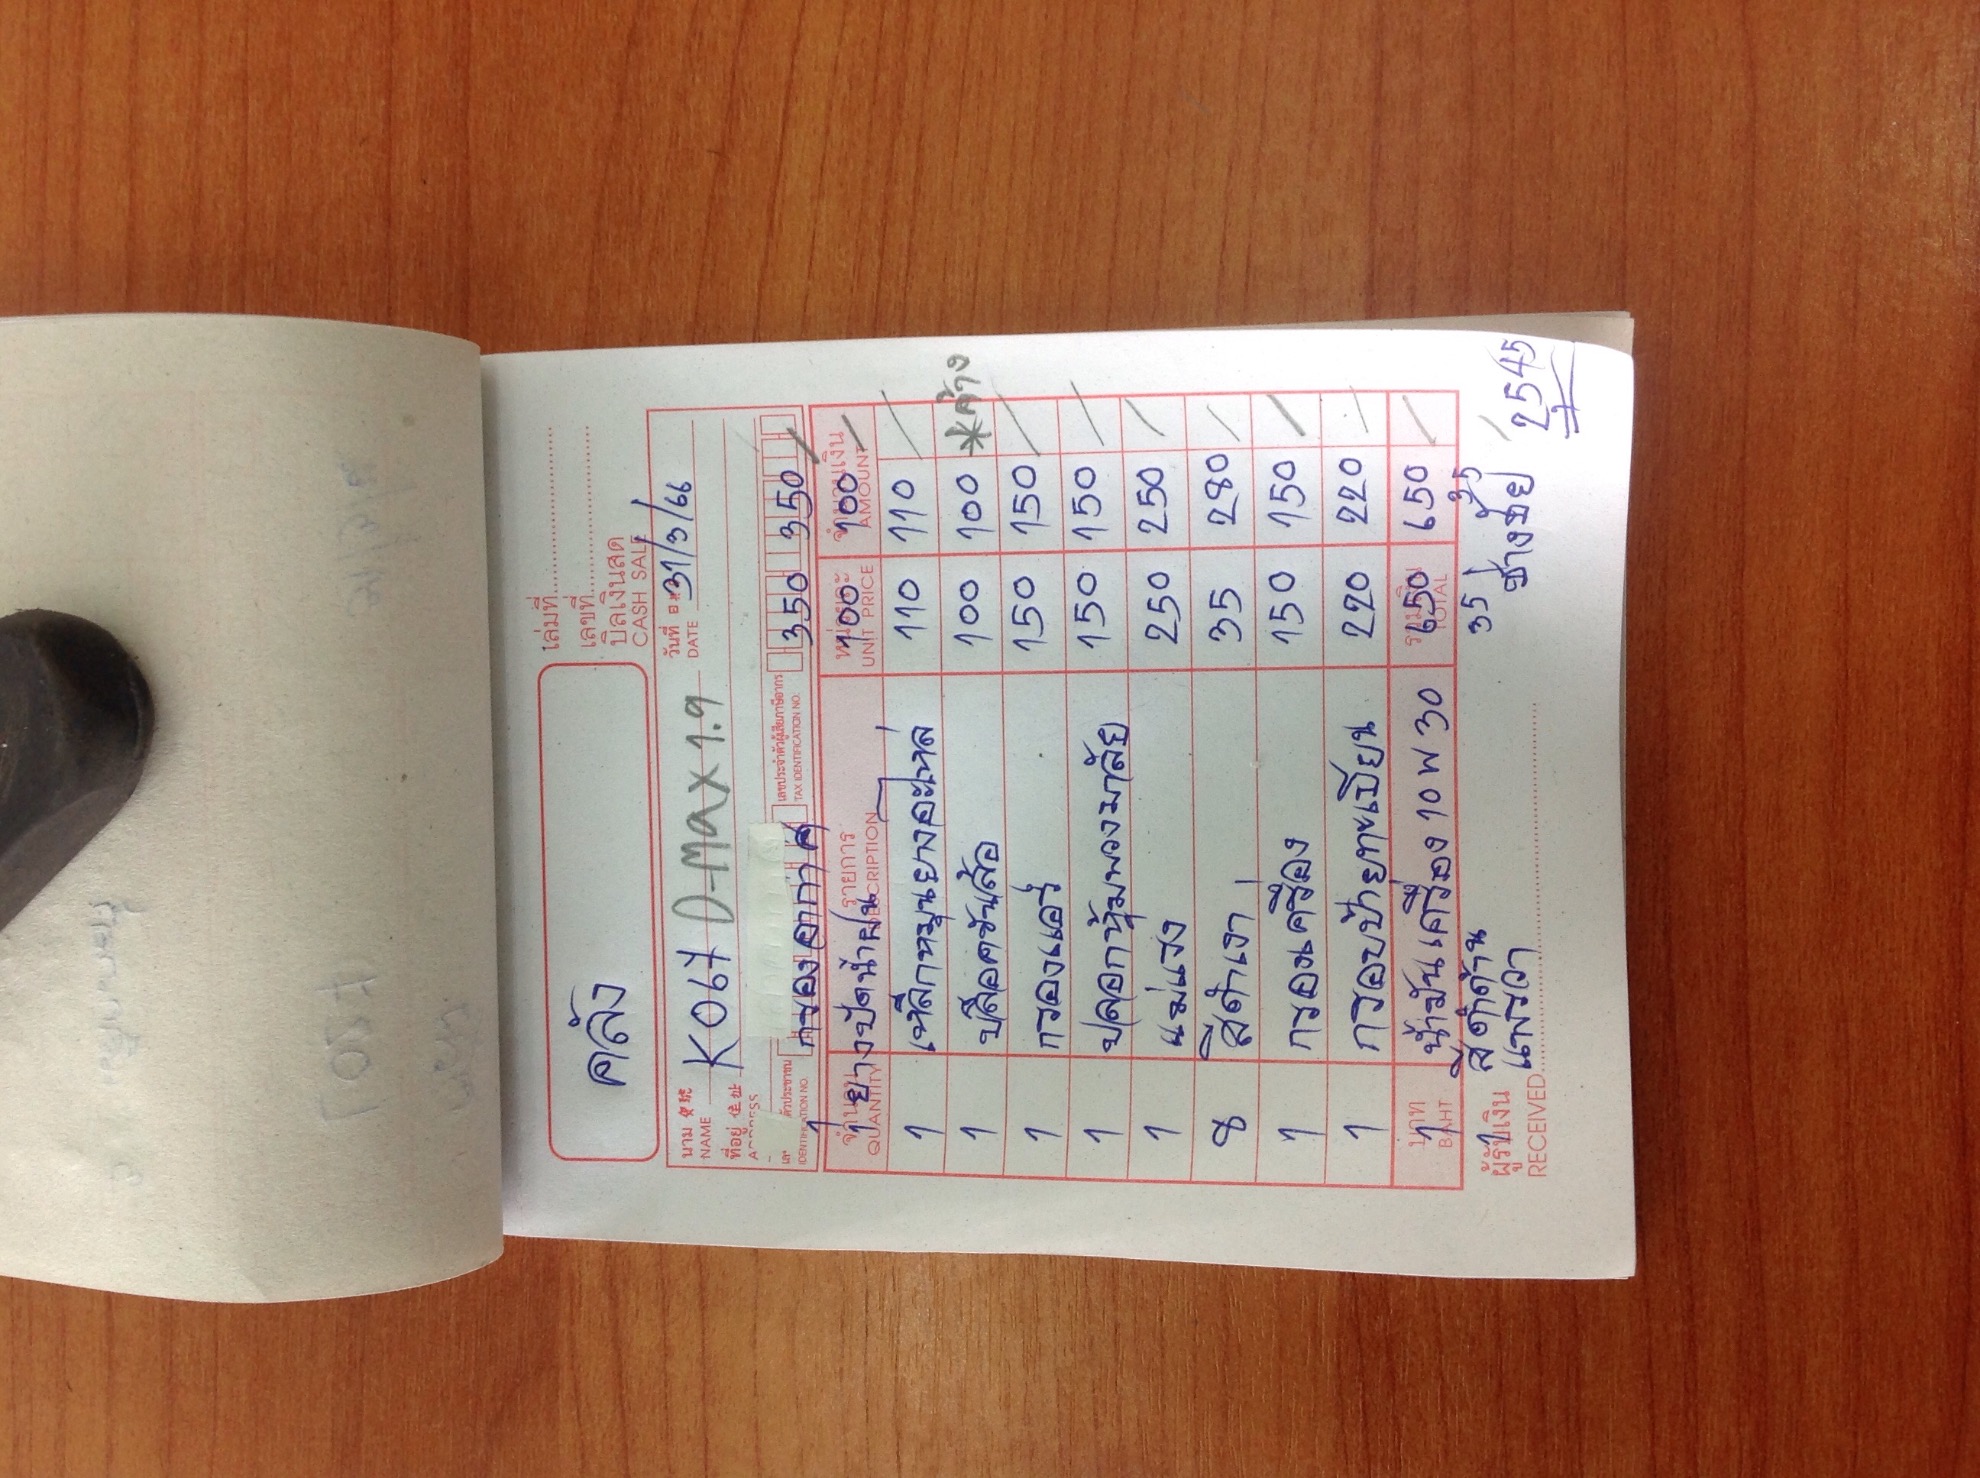 เล่มที่
เลขที่
บิลเงินสด
CASH SALE
คลัง
นาม
NAME
K067 D-Max 1.9
วันที่
DATE
31/3/66
ที่อยู่
IDENTIFICATION NO.
เลขประจำตัวผู้เสียภาษีอากร
TAX IDENTIFICATION NO.
1 กรองอากาศ 350 350
จำนวน รายการ หน่วยละ จำนวนเงิน
QUANTITY DESCRIPTION UNIT PRICE AMOUNT
1 ยางปัดน้ำฝน 100 100
1 เหล็กหมุนยางอะไหล่ 110 110
1 ปลือคขันล้อ 100 100 *ค้าง
1 กรองแอร์ 150 150
1 ปลอกหุ้มพวงมาลัย 150 150
1 แม่แรง 250 250
8 สีดำเงา 35 280
1 กรองเครื่อง 150 150
1 กรอบป้ายทะเบียน 220 220
1 น้ำมันเครื่อง 10 W 30 650 650
บาท รวมเงิน
BAHT TOTAL
1 สีดำด้าน 35 35
ผู้รับเงิน
RECEIVED
แพรวา
ช่างชัย
2545